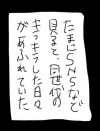 たまにSNSなど
見ると、同世代の
キラキラした日々
があふれていた